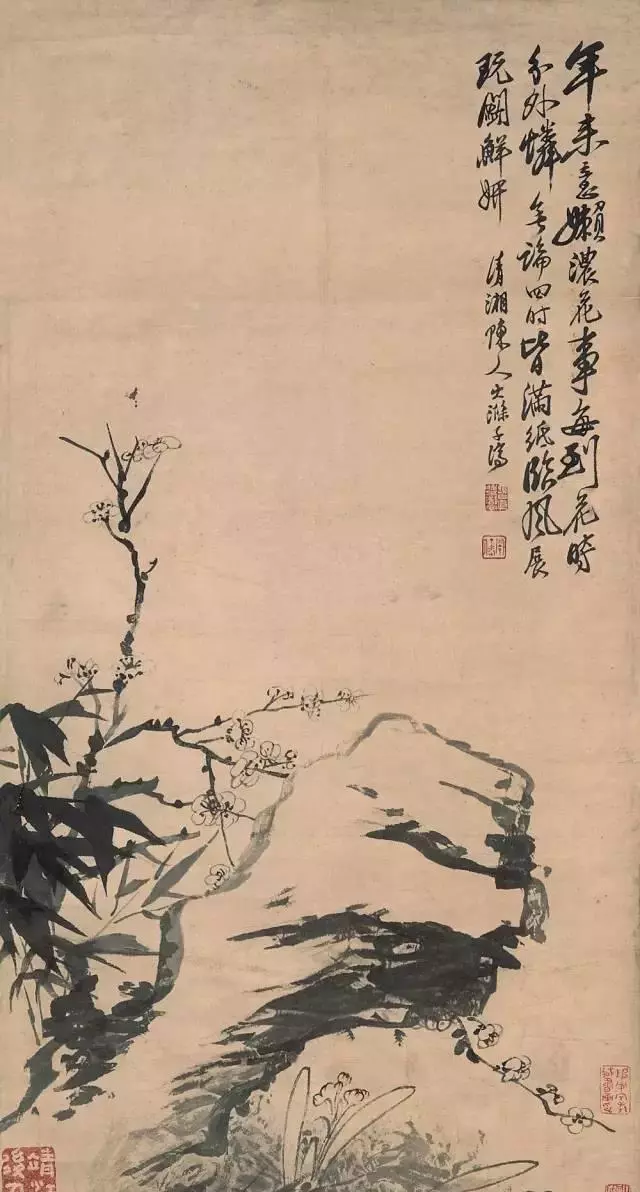 年来意懒濃花事每到花時
分外憐無論四时皆滿紙臨風展
玩鬬鮮妍
清湘陳人大滌子濟